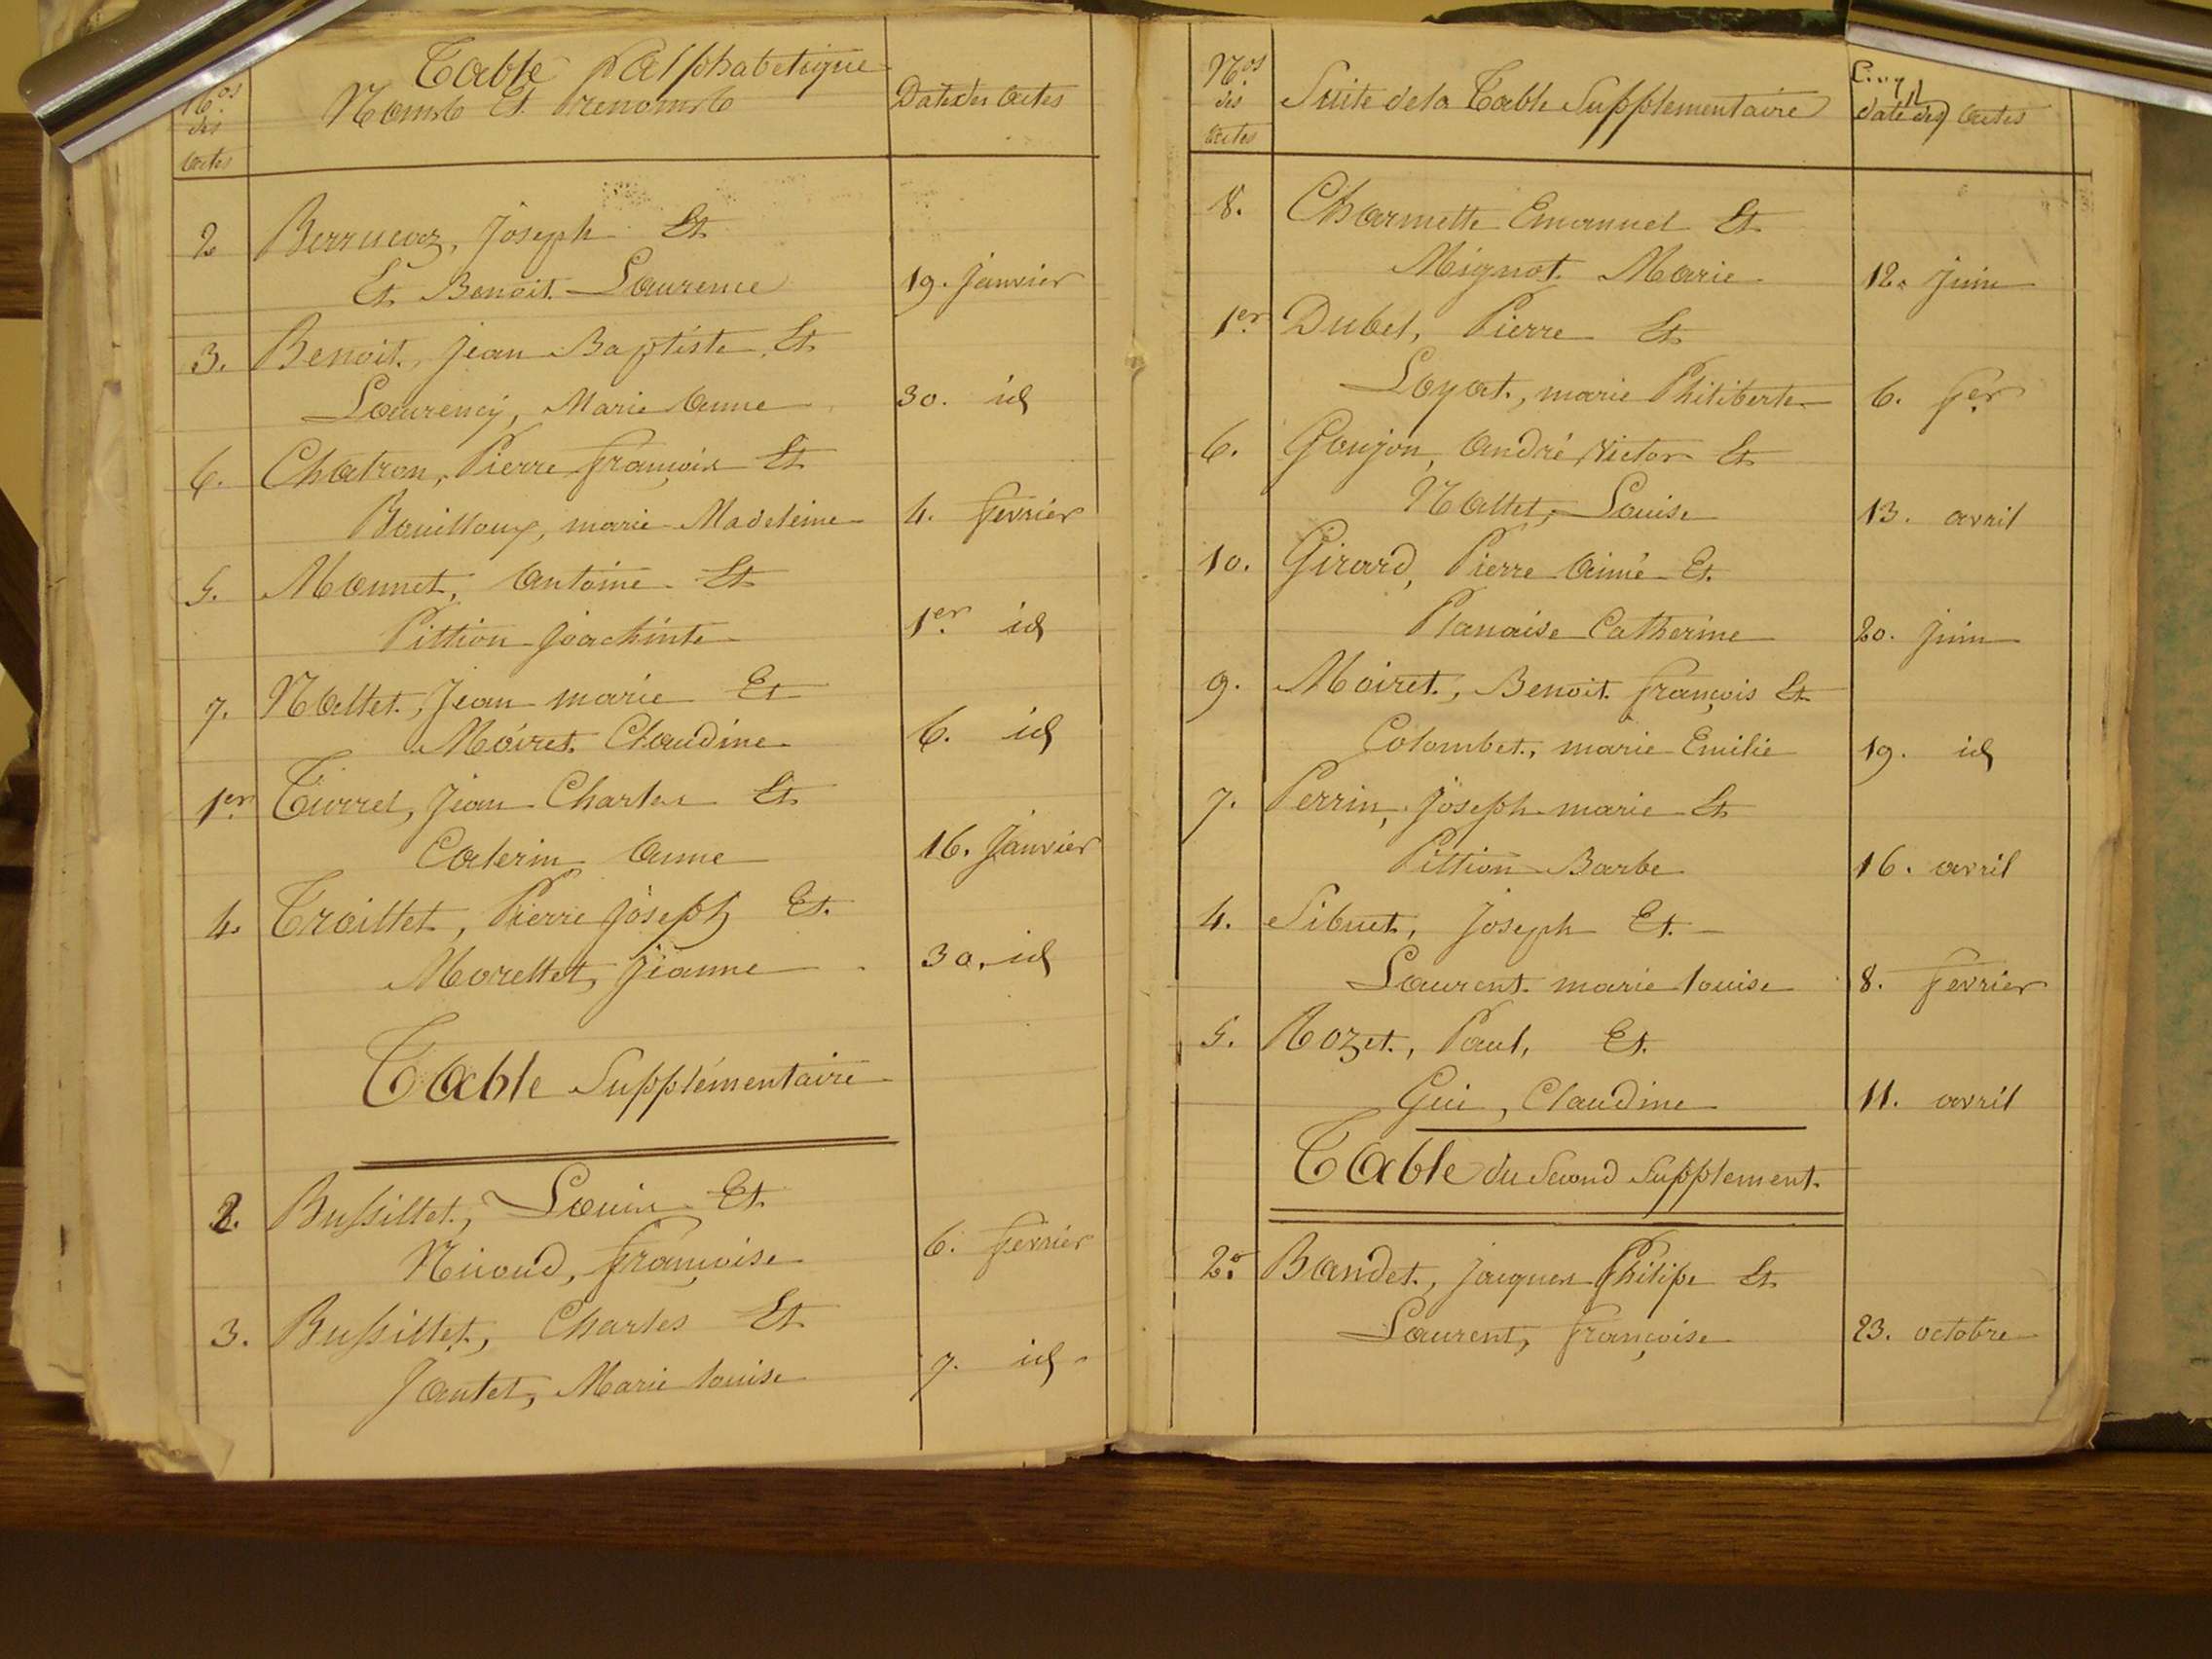 Table Alphabetique
Nos des actes
Noms Et Prenoms
Dates des Actes
2 Berrucoz, Joseph Et
Et Benoit Laurence 19. Janvier
3. Benoit, Jean Baptiste Et
Laurency, Marie Anne 30. id
6. Chatron, Pierre François Et
Bouilloux, marie Madeleine 4. fevrier
5. Monnet, Antoine Et
Pittion Joachinte 1er id
7. Nallet, Jean marie Et
Moiret Claudine 6. id
1er Turrel, Jean Charles Et
Caterin Anne 16. Janvier
4. Troillet, Pierre Joseph Et
Morellet, Jeanne 30. id
Table Supplémentaire
2. Bussillet, Louis Et
Nicoud, françoise 6. fevrier
3. Bussillet, Charles Et
Jantet, Marie louise 7. id
Nos des actes
Suite de la Table Supplementaire
date des Actes
8. Charmette Emanuel Et
Mignot Marie 12. Juin
1er Dubet, Pierre Et
Loyat, marie Philiberte 6. fer
6. Goujon, André Victor Et
Nallet, Louise 13. avril
10. Girard, Pierre Aimé Et
Planaise Catherine 20. Juin
9. Moiret, Benoit françois Et
Colombet, marie Emilie 19. id
7. Perrin, Joseph marie Et
Pittion Barbe 16. avril
4. Sibuet, Joseph Et
Laurent marie louise 8. fevrier
5. Rozet, Paul, Et
Gui, Claudine 11. avril
Table du Second Supplement
2e Bandet, Jacques Philipe Et
Laurent, françoise 23. octobre